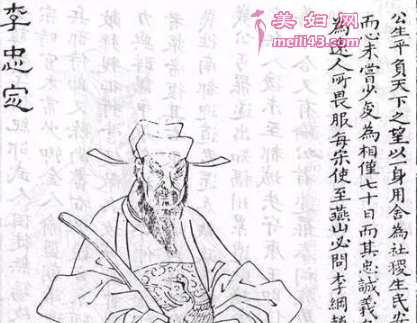 美妇网
meili43.com
公生平負天下之望以身用舍為社稷生民安
而心未嘗少變為相僅七十日而其忠誠義
為逺人所畏服每宋使至燕山必問李綱趙
李忠定